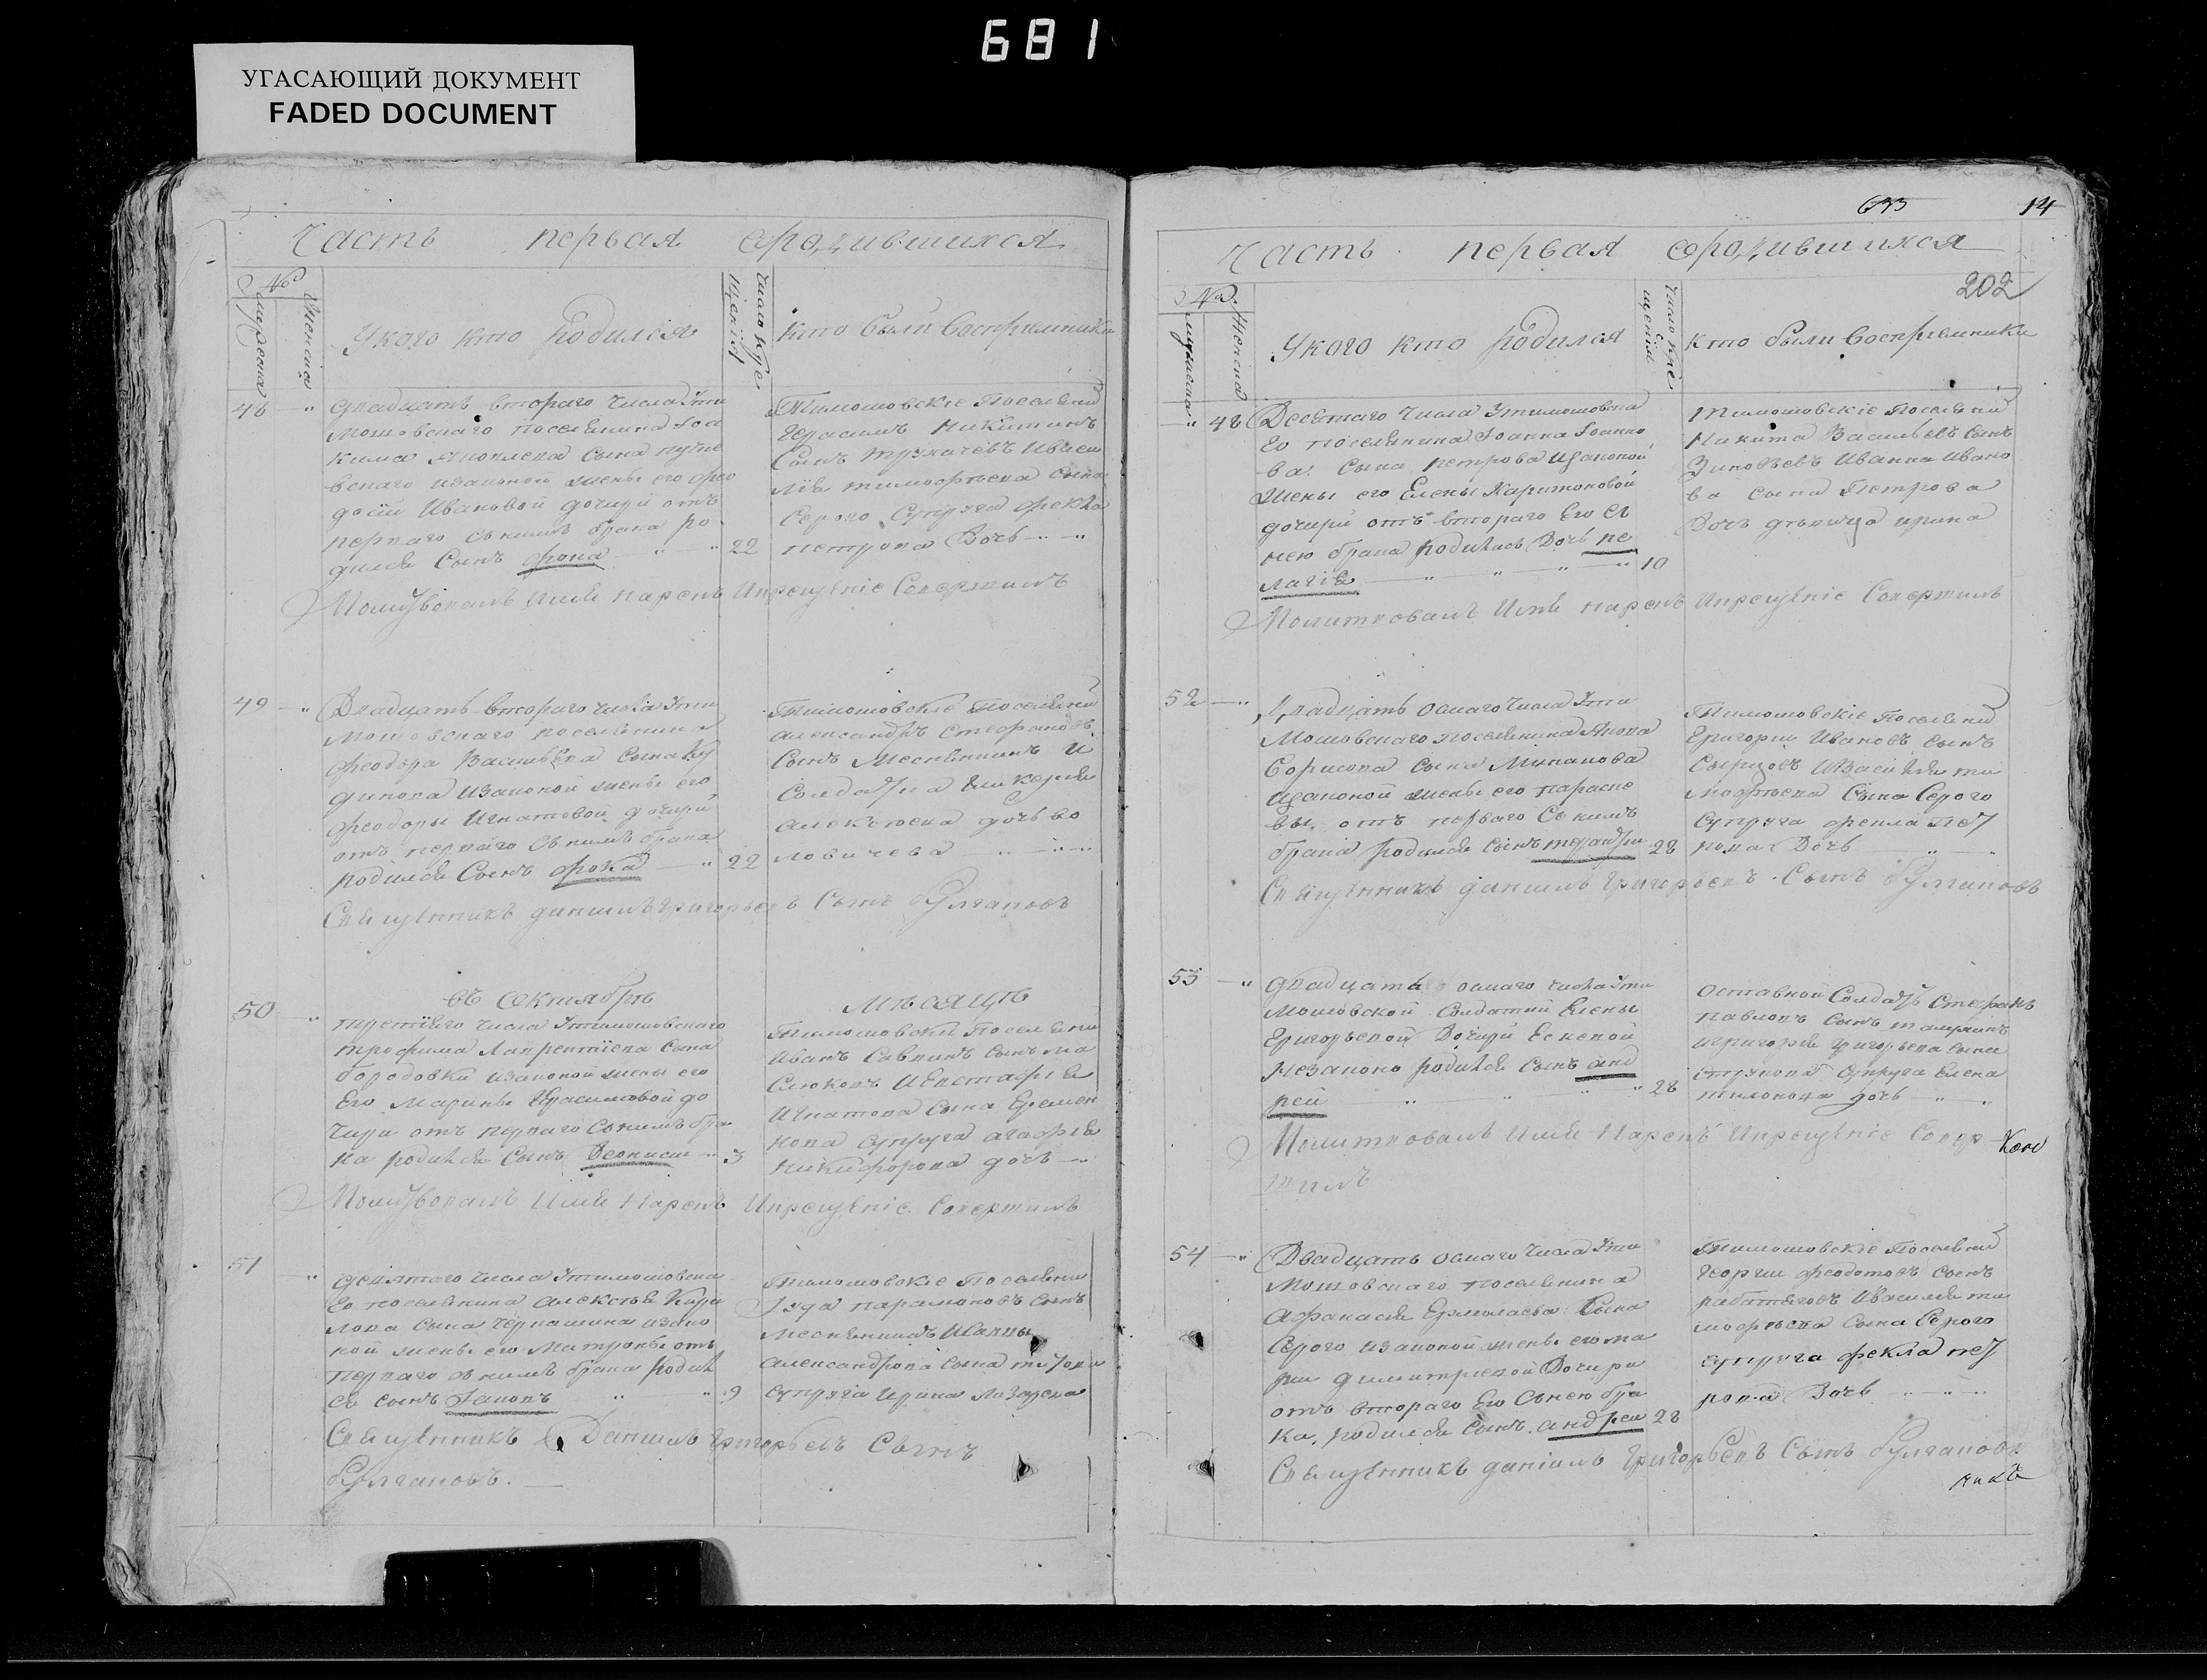 681
УГАСАЮЩИЙ ДОКУМЕНТ
FADED DOCUMENT
Часть первая ородившихся
№
Мужеска
Женска
У кого кто Родился
число кре
щенія
кто были Восприемники
48
двадцать втораго числа Ути
мошовскаго поселянина Іоа
кима Яковлева сына
вскаго изаконой жены его фео
досіи Ивановой дочери отъ
перваго съ нимъ брака ро
дился Сынъ фока 22
Тимошовскіе Поселяни
Герасимъ Никитинъ
Сынъ Трухачевъ Иваси
лія тимофѣева сына
Серого Супруга фекла
петрова Дочь
Молитвовалъ Имя нарекъ Икрещеніе Совершилъ
49
Двадцать втораго числа Ути
мошовскаго поселянина
феодора Васильева сына
динова изаконой жены его
феодоры Игнатовой дочери
отъ перваго Съ нимъ брака
родился Сынъ фока 22
Тимошовскіе Поселяни
александръ Стефановъ
Сынъ Месняникинъ И
Солдатка Гликерія
алексѣева дочь во
ловичева
Священникъ даниилъ григорьевъ Сынъ Булгаковъ
въ Октябрѣ Мѣсяцѣ
50
третяго числа Утимошовскаго
трофима Лаврентіева сына
бородовки изаконой жены его
Его Марины Герасимовой до
чири отъ перваго Сънимъ бра
ка родился Сынъ Деонисии 3
Тимошовскіе Поселяни
Иванъ Савинъ сынъ ма
Слюковъ Иевстафія
Игнатова сына Еремен
кова супруга агафія
Никифорова дочь
Молитвовалъ Имя Нарекъ Икрещеніе Совершилъ
51
девятаго числа Утимошовска
го поселянина алексѣя Кири
лова сына Чернашина изако
ной жены его Матроны отъ
перваго съ нимъ брака Родил
ся сынъ Іаковъ 9
Тимошовскіе Поселяни
Іуда парамоновъ сынъ
Месняникинъ Иванны
александрова сына
супруга Ирина Лазарева
Священникъ Даниилъ григорьевъ Сынъ
Булгаковъ.
14
202
Часть первая ородившихся
№
мужеска
Женска
У кого кто Родился
число кре
щенія
кто были Восприемники
48
Десятаго числа Утимошовска
го поселянина Іоанна Іоанно
ва сына петрова изаконой
жены его Елены Харитоновой
дочери отъ втораго Его съ
нею брака Родилась Дочь пе
лагія 10
тимошовскіе Поселяни
Никита Васильевъ сынъ
Зиновьевъ Иванна Ивано
ва сына Петрова
Дочь дѣвица ирина
Молитвовалъ Имя нарекъ Икрещеніе Совершилъ
52
Двадцать осмаго числа Ути
Мошовскаго поселянина Якова
Борисова сына
изаконой жены его параске
вы отъ перваго Съ нимъ
брака Родился сынъ 28
Тимошовскіе Поселяни
Григории Ивановъ сынъ
Сырцовъ Ивасилія ти
мофѣева Сына Серого
супруга фекла Пет
рова Дочь
Священникъ даниилъ григорьевъ Сынъ Булгаковъ
53
двадцать осмаго числа Ути
мошовской Солдатки Елены
Григорьевой Дочери Ескевой
Незаконо родился сынъ анд
реи 28
отставной Солдатъ Стефанъ
павловъ сынъ
игригорія григорьева сына
супруга Елена
дочь
Молитвовалъ Имя Нарекъ Икрещеніе Совер
шилъ
54
Двадцать осмаго числа Ути
Мошовскаго поселянина
афанасія Ермолаева Сына
Серого изаконой жены его ма
рии димитриевой Дочери
отъ втораго Его Снею бра
ка, родился сынъ андреи 28
Тимошовскіе Поселяни
Георгии феодотовъ сынъ
Ивасилія ти
мофѣева Сына Серого
супруга фекла пет
рова Дочь
Священникъ даниилъ григорьевъ Сынъ Булгаковъ